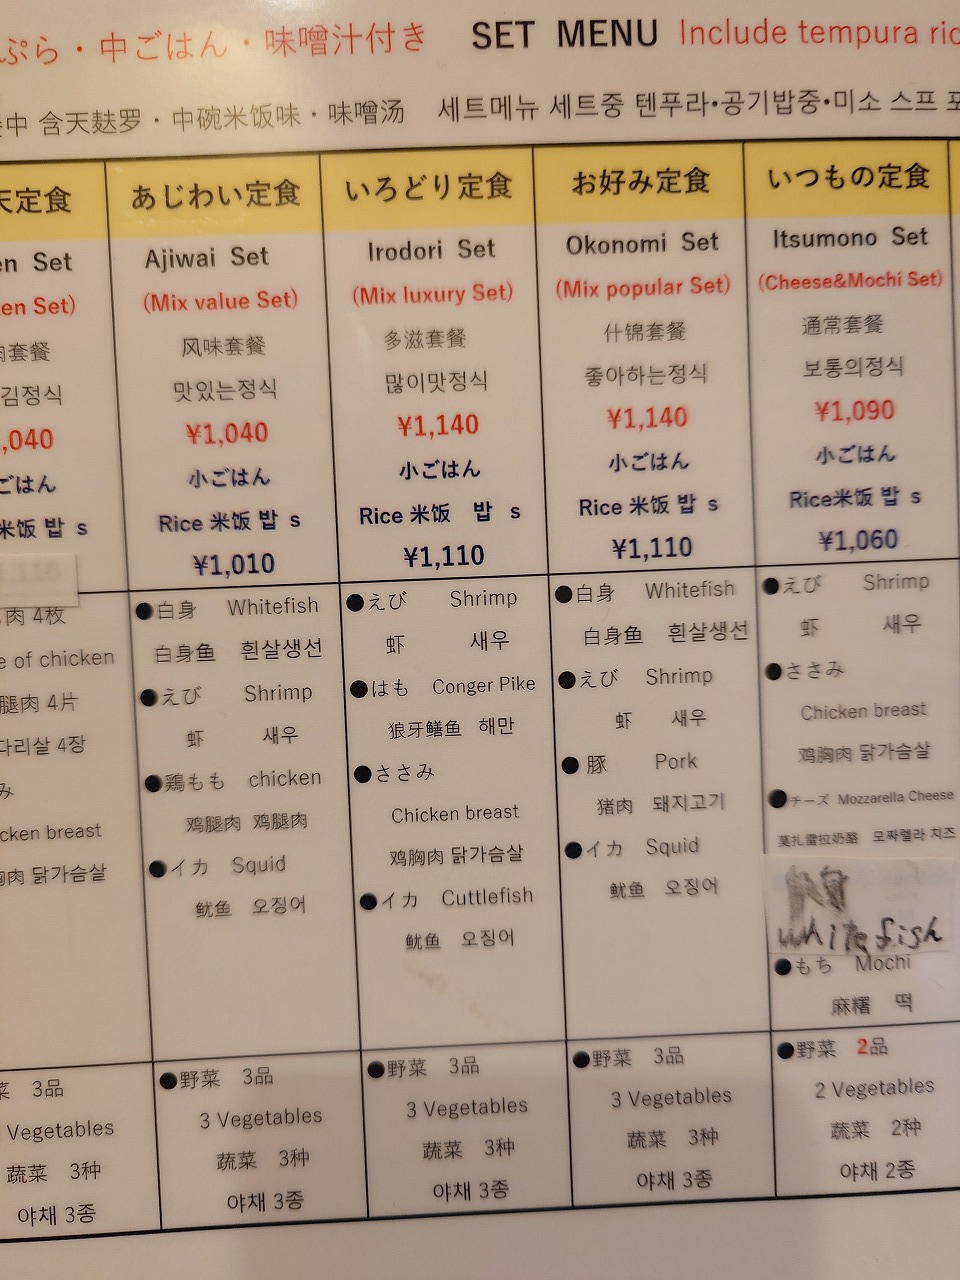 ぷら・中ごはん・味噌汁付き SET MENU Include tempura ric
中 含天麸罗・中碗米饭味・味噌汤 세트메뉴 세트중 텐푸라•공기밥중•미소 스프 포
天定食
en Set
en Set)
肉套餐
김정식
,040
ごはん
米饭 밥 s
肉 4枚
e of chicken
腿肉 4片
다리살 4장
み
cken breast
胸肉 닭가슴살
菜 3品
Vegetables
蔬菜 3种
야채 3종
あじわい定食
Ajiwai Set
(Mix value Set)
风味套餐
맛있는정식
¥1,040
小ごはん
Rice 米饭 밥 s
¥1,010
●白身 Whitefish
白身鱼 흰살생선
●えび Shrimp
虾 새우
●鶏もも chicken
鸡腿肉 鸡腿肉
●イカ Squid
鱿鱼 오징어
●野菜 3品
3 Vegetables
蔬菜 3种
야채 3종
いろどり定食
Irodori Set
(Mix luxury Set)
多滋套餐
많이맛정식
¥1,140
小ごはん
Rice 米饭 밥 s
¥1,110
●えび Shrimp
虾 새우
●はも Conger Pike
狼牙鳝鱼 해만
●ささみ
Chicken breast
鸡胸肉 닭가슴살
●イカ Cuttlefish
鱿鱼 오징어
●野菜 3品
3 Vegetables
蔬菜 3种
야채 3종
お好み定食
Okonomi Set
(Mix popular Set)
什锦套餐
좋아하는정식
¥1,140
小ごはん
Rice 米饭 밥 s
¥1,110
●白身 Whitefish
白身鱼 흰살생선
●えび Shrimp
虾 새우
●豚 Pork
猪肉 돼지고기
●イカ Squid
鱿鱼 오징어
●野菜 3品
3 Vegetables
蔬菜 3种
야채 3종
いつもの定食
Itsumono Set
(Cheese&Mochi Set)
通常套餐
보통의정식
¥1,090
小ごはん
Rice米饭 밥 s
¥1,060
●えび Shrimp
虾 새우
●ささみ
Chicken breast
鸡胸肉 닭가슴살
●チーズ Mozzarella Cheese
莫扎雷拉奶酪 모짜렐라 치즈
white fish
●もち Mochi
麻糬 떡
●野菜 2品
2 Vegetables
蔬菜 2种
야채 2종